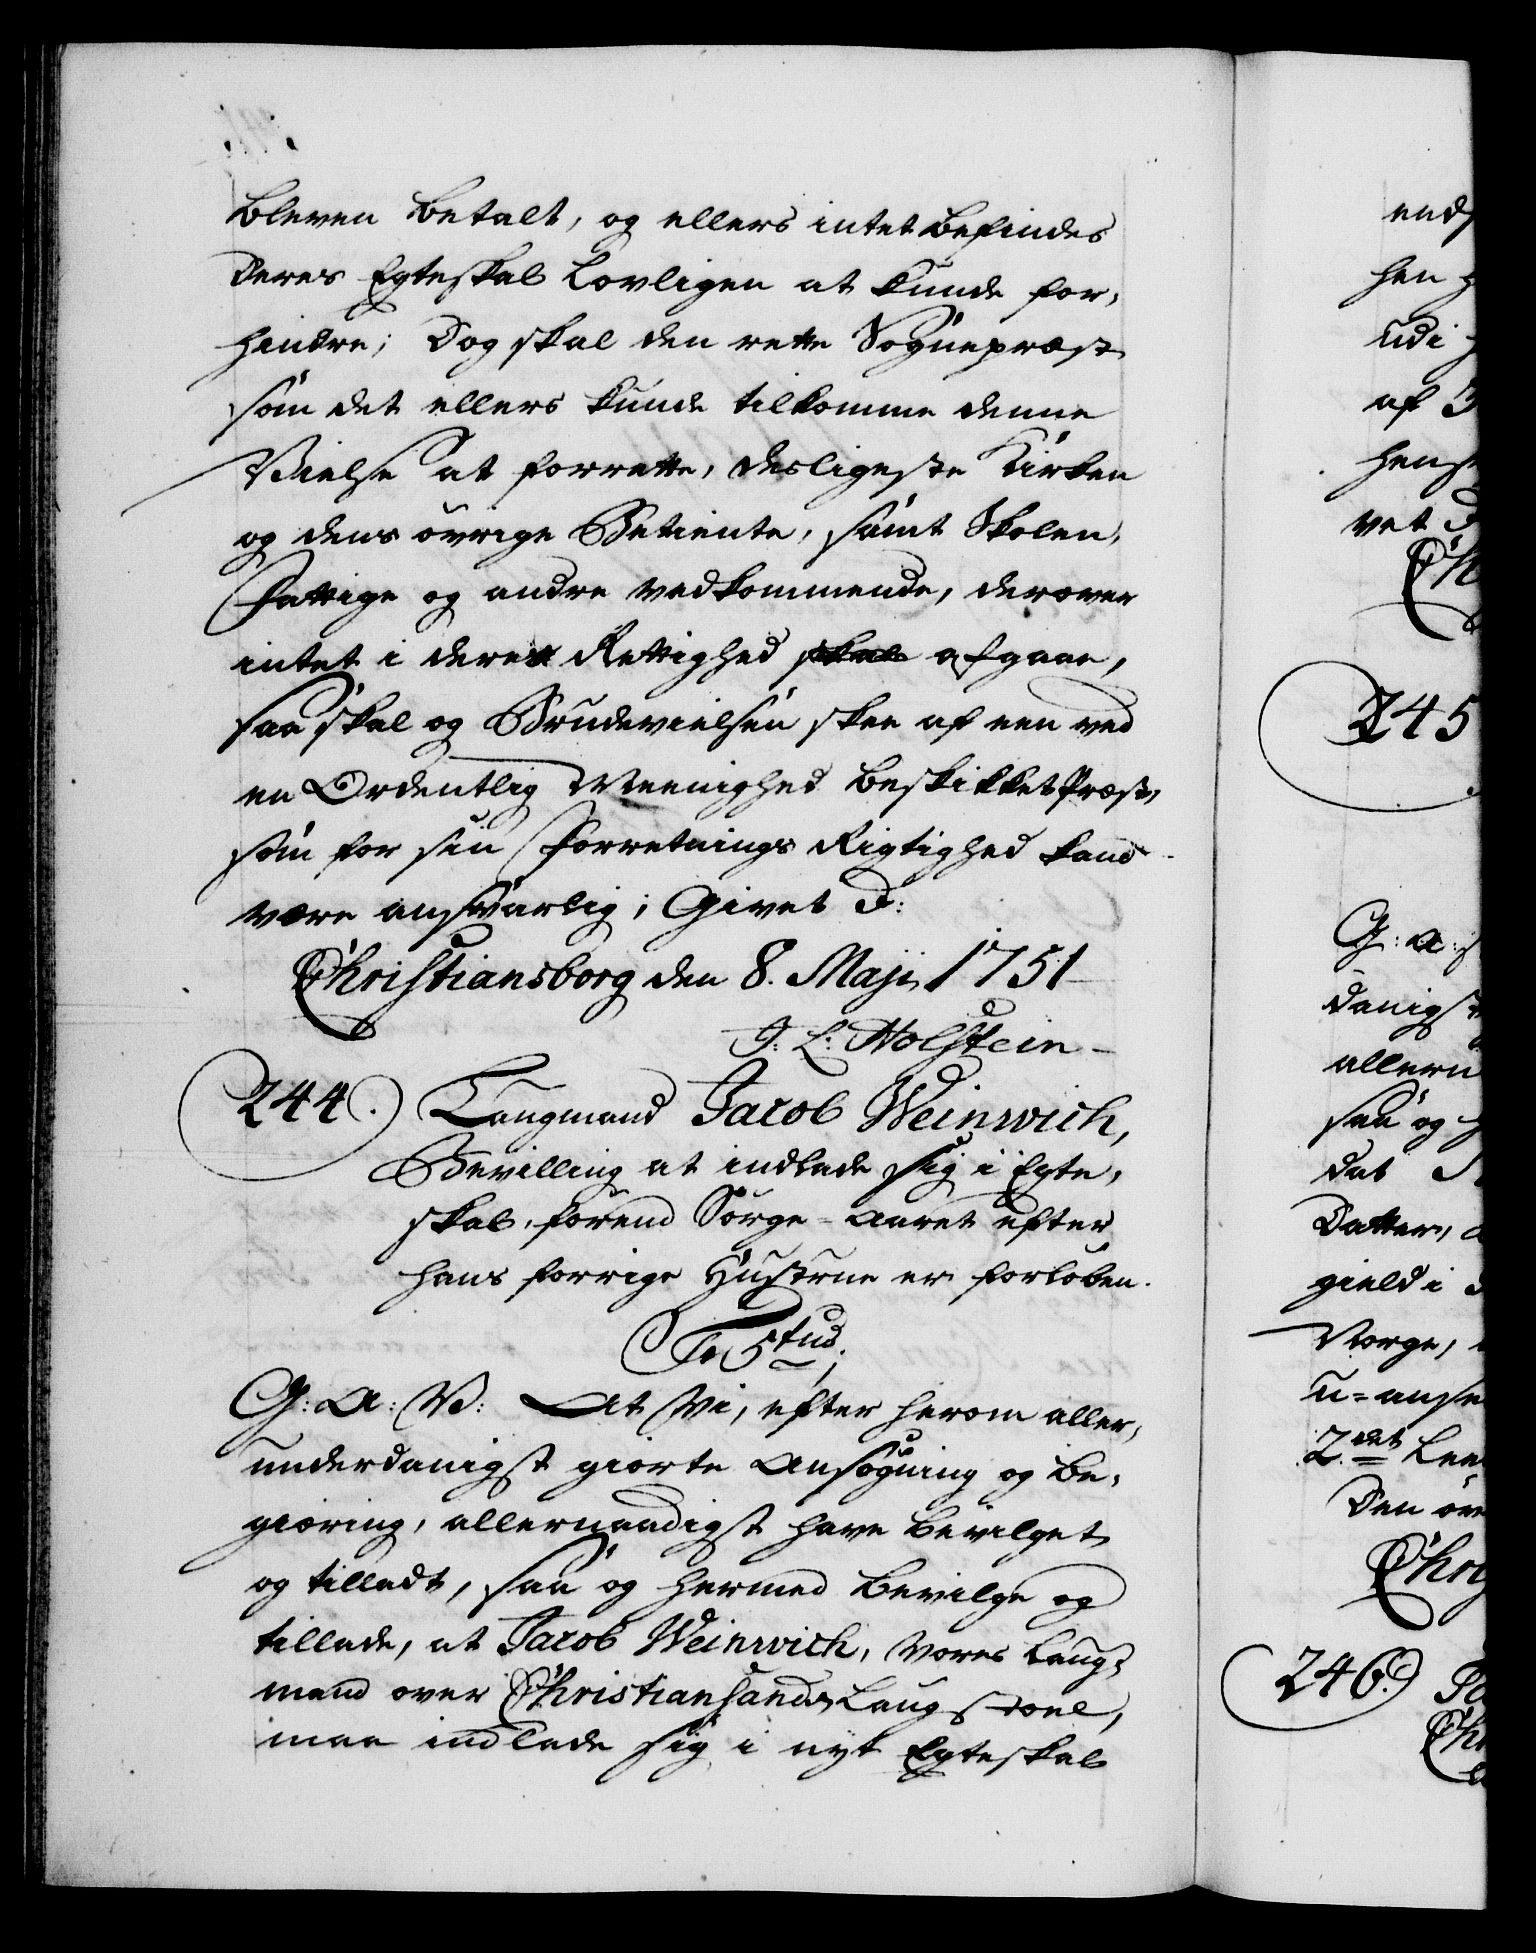 bleven betalt, og ellers intet befindes
deres Egteskab lovligen at kunde for-
hindre; Dog skal den rette Sognepræst
som det ellers kunde tilkomme denne
Vielse at forrette, desligeste Kirken
og dens övrige Betiente, samt Skolen,
Fattige og andre vedkommende, derover
intet i deres Rettighed skal afgaae,
saa skal og Brudevielsen skee af een ved
en Ordentlig Meenighed beskikket Præst,
som for sin Forretnings Rigtighed kand
være ansvarlig; Givet d:
Christiansborg den 8. Maji 1751
J: L: Holstein
244. Laugmand Jacob Weinwich,
Bevilling at indlade sig i Egte-
skab, forend Sørge-aaret efter
hans forrige Hustrue er forløben.
F 5tus.
G: A: V: At Vi, efter herom aller-
underdanigst giorte Ansögning og be-
giæring, allernaadigst have bevilget
og tilladt, saa og hermed bevilge og
tillade, at Jacob Weinwich, vores Laug-
mand over Christiansands Laugstoel,
maa indlade sig i nyt Egteskab
hen
udi
af
vet
245
G: A:
danigst
allern
saa og
dat
Datter,
gield i
Norge,
u-anse
2.det Lee
Den öv
Chri
246.